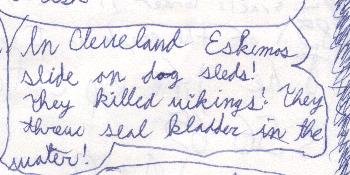 In Cleveland Eskimos
slide on dog sleds!
They killed vikings! They
throw seal bladder in the
water!